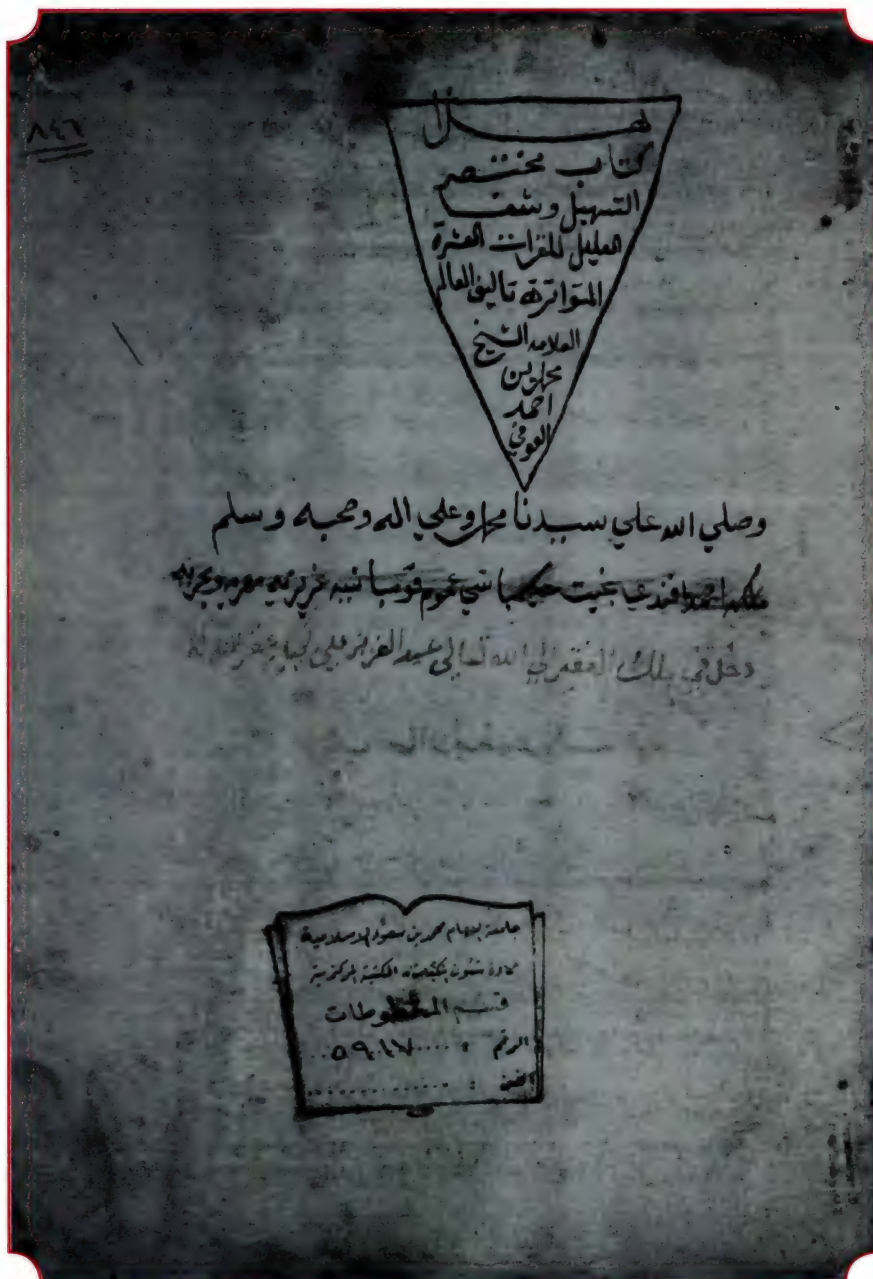 ٨٤٦
هذا
كتاب مختصر
التسهيل وشفا
العليل للقرات العشرة
المتواتره تاليف العالم
العلامه الشيخ
محمد بن
احمد
العوفي
وصلي الله علي سيدنا محمد وعلي اله وصحبه وسلم
دخل في ملك الفقير الي الله تعالى عبد العزيز علي
جامعة الإمام محمد بن سعود الإسلامية
عمادة شئون المكتبات المكتبة المركزية
قسم المخطوطات
الرقم :
الفن :